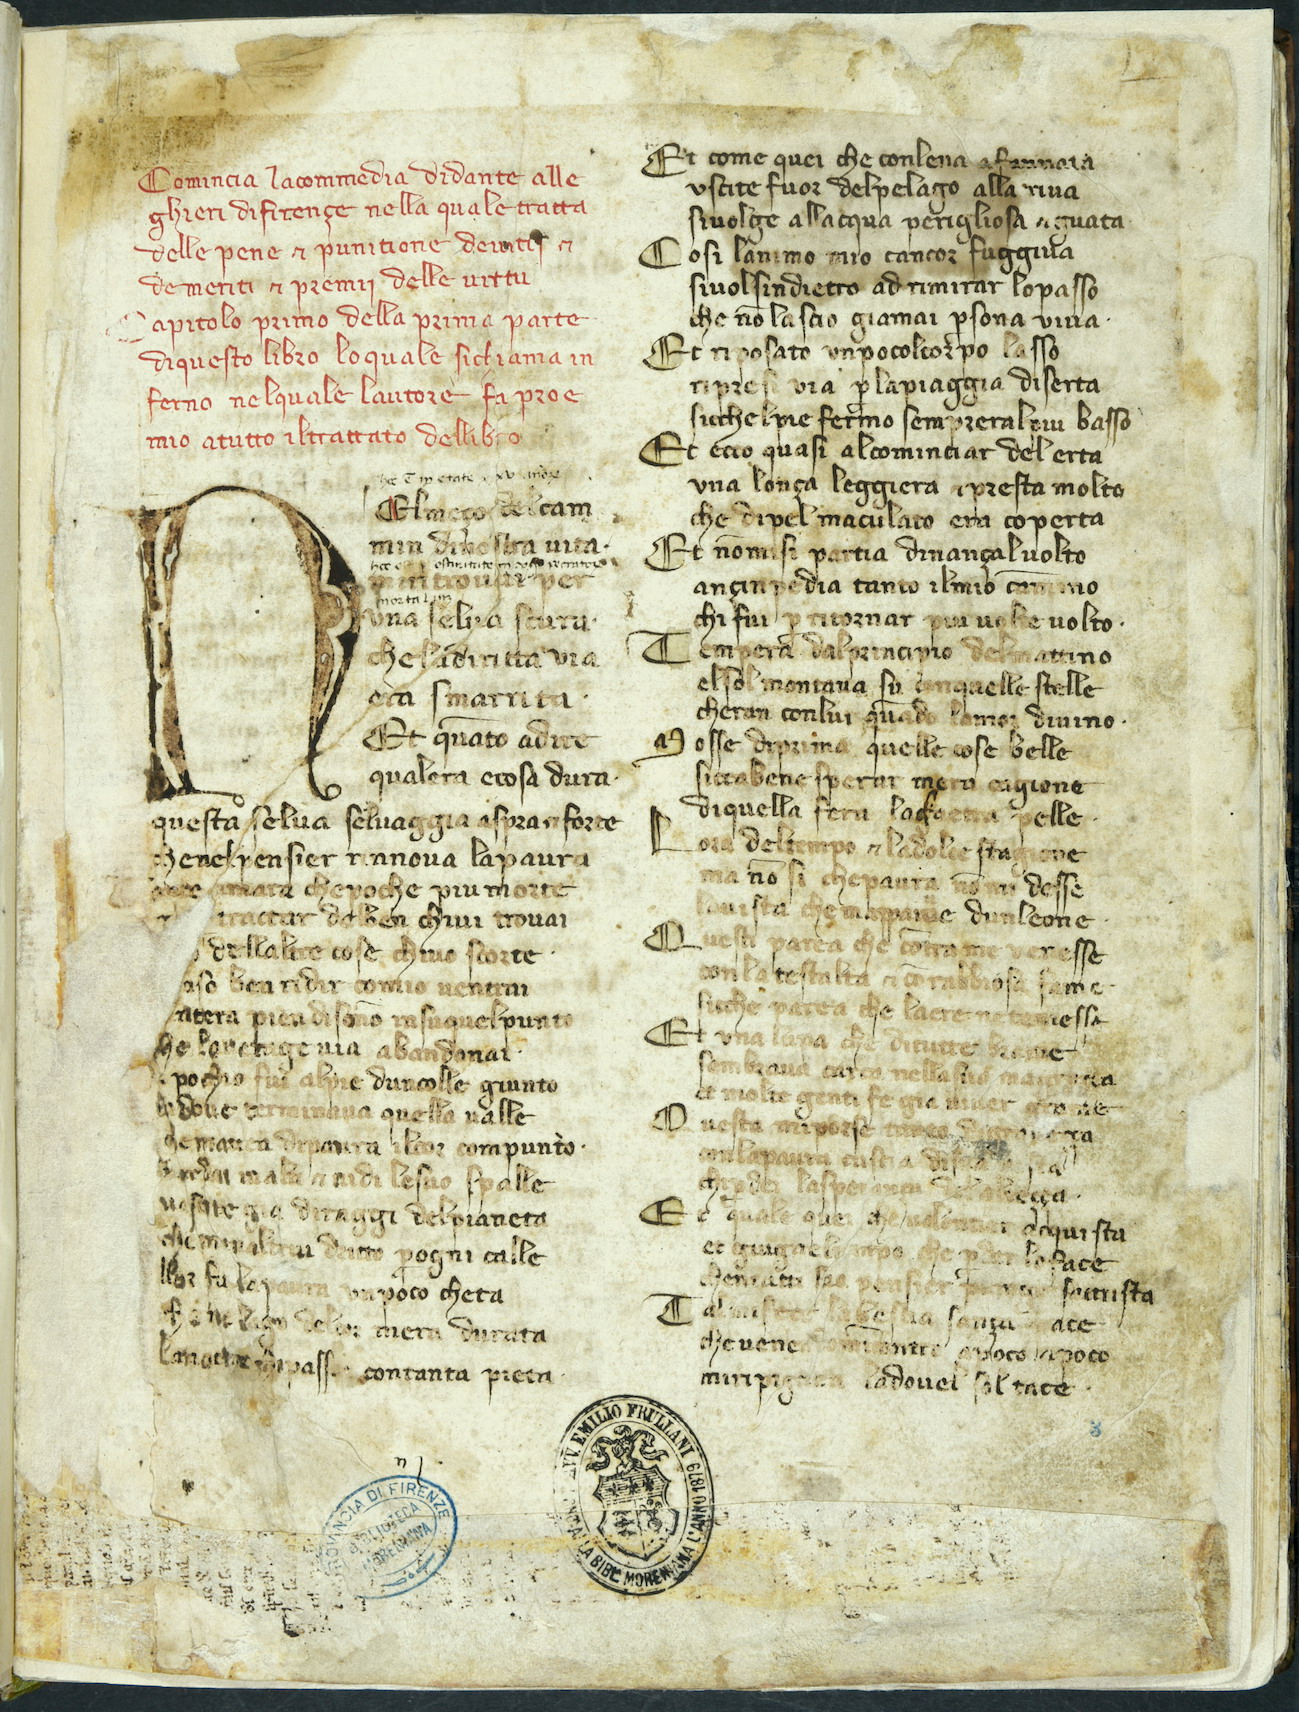 Comincia lacommedia didante alle
ghieri difirençe nella quale tratta
delle pene & punitione deuitij &
demeriti & premij delle uirtu
Capitolo primo della prima parte
diquesto libro loquale sichiama in
ferno nelquale lautore fa proe
mio atutto iltrattato dellibro
NElmeço delcam
min dinostra uita.
mi ritrouai per
una selua scura.
che ladiritta via
era smarrita.
Et qua̅to adire
qualera e cosa dura.
questa selua seluaggia aspra & forte
che nel pensier rinnova lapaura
amara chepoche piu morte
trattar del ben chiui trouai
dellaltre cose chiuo scorte.
so ben ridir comio uentrai
ntera pien diso̅no insuquelpunto
he la uerage uia abandonai.
pochio fui alpie duncolle giunto
la doue terminaua quella ualle
che mauea dipaura ilcor compunto.
alto & uidi lesue spalle
uestite gia diraggi delpianeta
che mena altrui dritto p ogni calle
llor fu lapaura unpoco cheta
che nel lago delcor mera durata
lanotte chipassai contanta pieta.
Et come quei che conlena affannata
uscite fuor delpelago alla riua
siuolge allacqua perigliosa & guata
Cosi lanimo mio cancor fuggiua
siuolsindietro ad rimirar lopasso
che no̅ lascio giamai psona uiua.
Et riposato unpocolcorpo lasso
ripresi via p lapiaggia diserta
sicchelpie fermo sempreralpiu basso
Et ecco quasi alcominciar del erta
una lonça leggiera & presta molto
che dipel maculato era coperta
Et no̅misi partia dinançalvolto
ançi npedia tanto ilmio ca̅mino
chi fui p ritornar piu uolte uolto.
Tempera dalprincipio delmattino
elsol montaua su conquelle stelle
cheran conlui qua̅do lamor diuino.
Mosse diprima quelle cose belle
sicca bene sperar mera cagione
diquella fera lagaetta pelle.
Lora deltempo & ladolce stagione
ma no̅ si chepaura no̅ mi desse
lauista che mapparue dunleone.
Questi parea che co̅tra me venesse
con la testalta & co̅ rabbiosa fame.
sicche parea che laere ne temesse
Et una lupa che ditutte brame
sembraua carca nellasua magreça
et molte genti fe gia uiuer grame
Questa miporse tanto digraueça
conlapaura cuscia disua uista
chio dei lasperança delalteça.
Et quale quei che uolentier acquista
et giugnel tempo che pder loface
chentutti suo pensier piange sattrista
Tal mi fece labestia sança pace
che uene domi̅ncontro apoco apoco
mi ripignea ladouel sol tace.
3
PROVINCIA DI FIRENZE
BIBLIOTECA
MORENIANA
EMILIO FRULLANI
ALLA BIBL. MORENIANA L'ANNO 1879